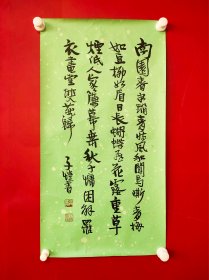 南園春半踏青時風和聞馬嘶青梅
如豆柳如眉日長蝴蝶飛花露重草
煙低人家簾幕垂秋千慵困解羅
衣畫堂雙燕歸
子愷書